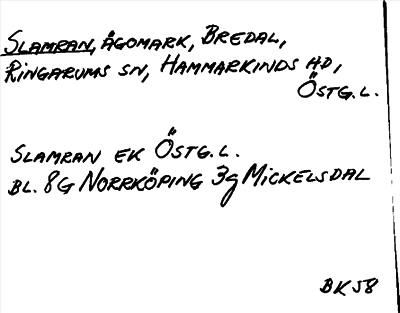 SLAMRAN, ÄGOMARK, BREDAL,
RINGARUMS SN, HAMMARKINDS HD,
ÖSTG.L.
SLAMRAN EK ÖSTG.L.
BL. 8G NORRKÖPING 3g MICKELSDAL
BK58